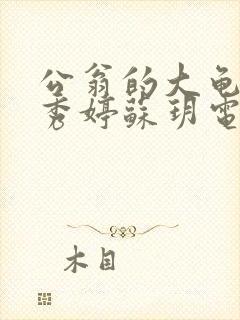 公翁的大龟
秀婷蘇玥電
木目